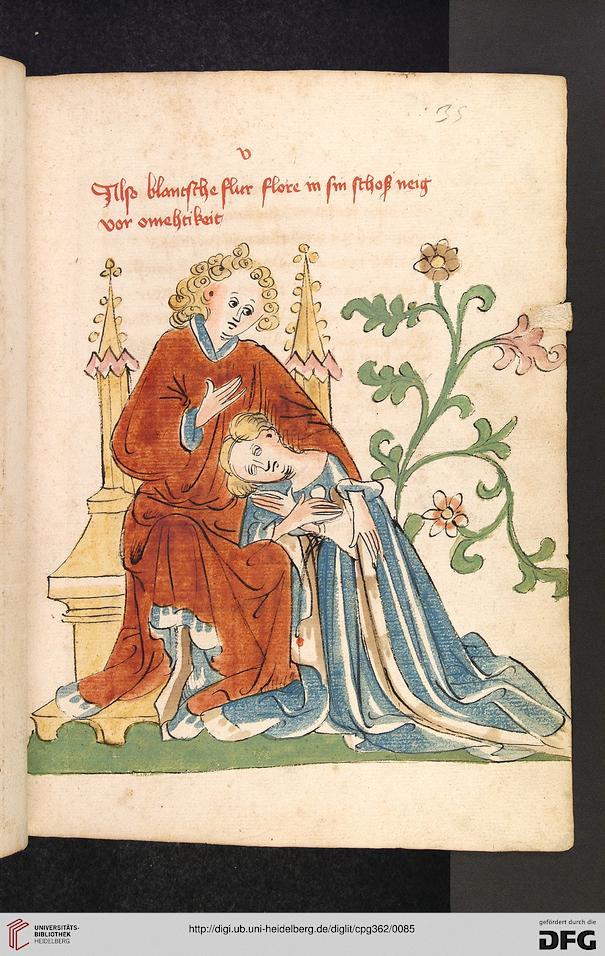 35
v
Also blantsche flur flore in sin schoß neig
vor omehtikeit
UNIVERSITÄTS-
BIBLIOTHEK
HEIDELBERG
http://digi.ub.uni-heidelberg.de/diglit/cpg362/0085
gefördert durch die
DFG